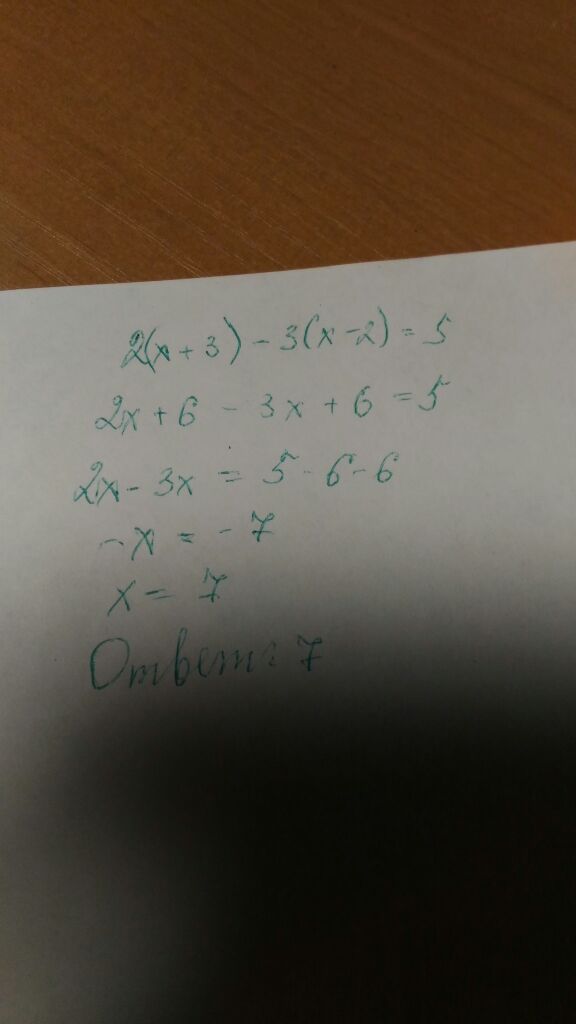 2(x + 3) - 3(x - 2) = 5
2x + 6 - 3x + 6 = 5
2x - 3x = 5 - 6 - 6
-x = -7
x = 7
Ответ: 7